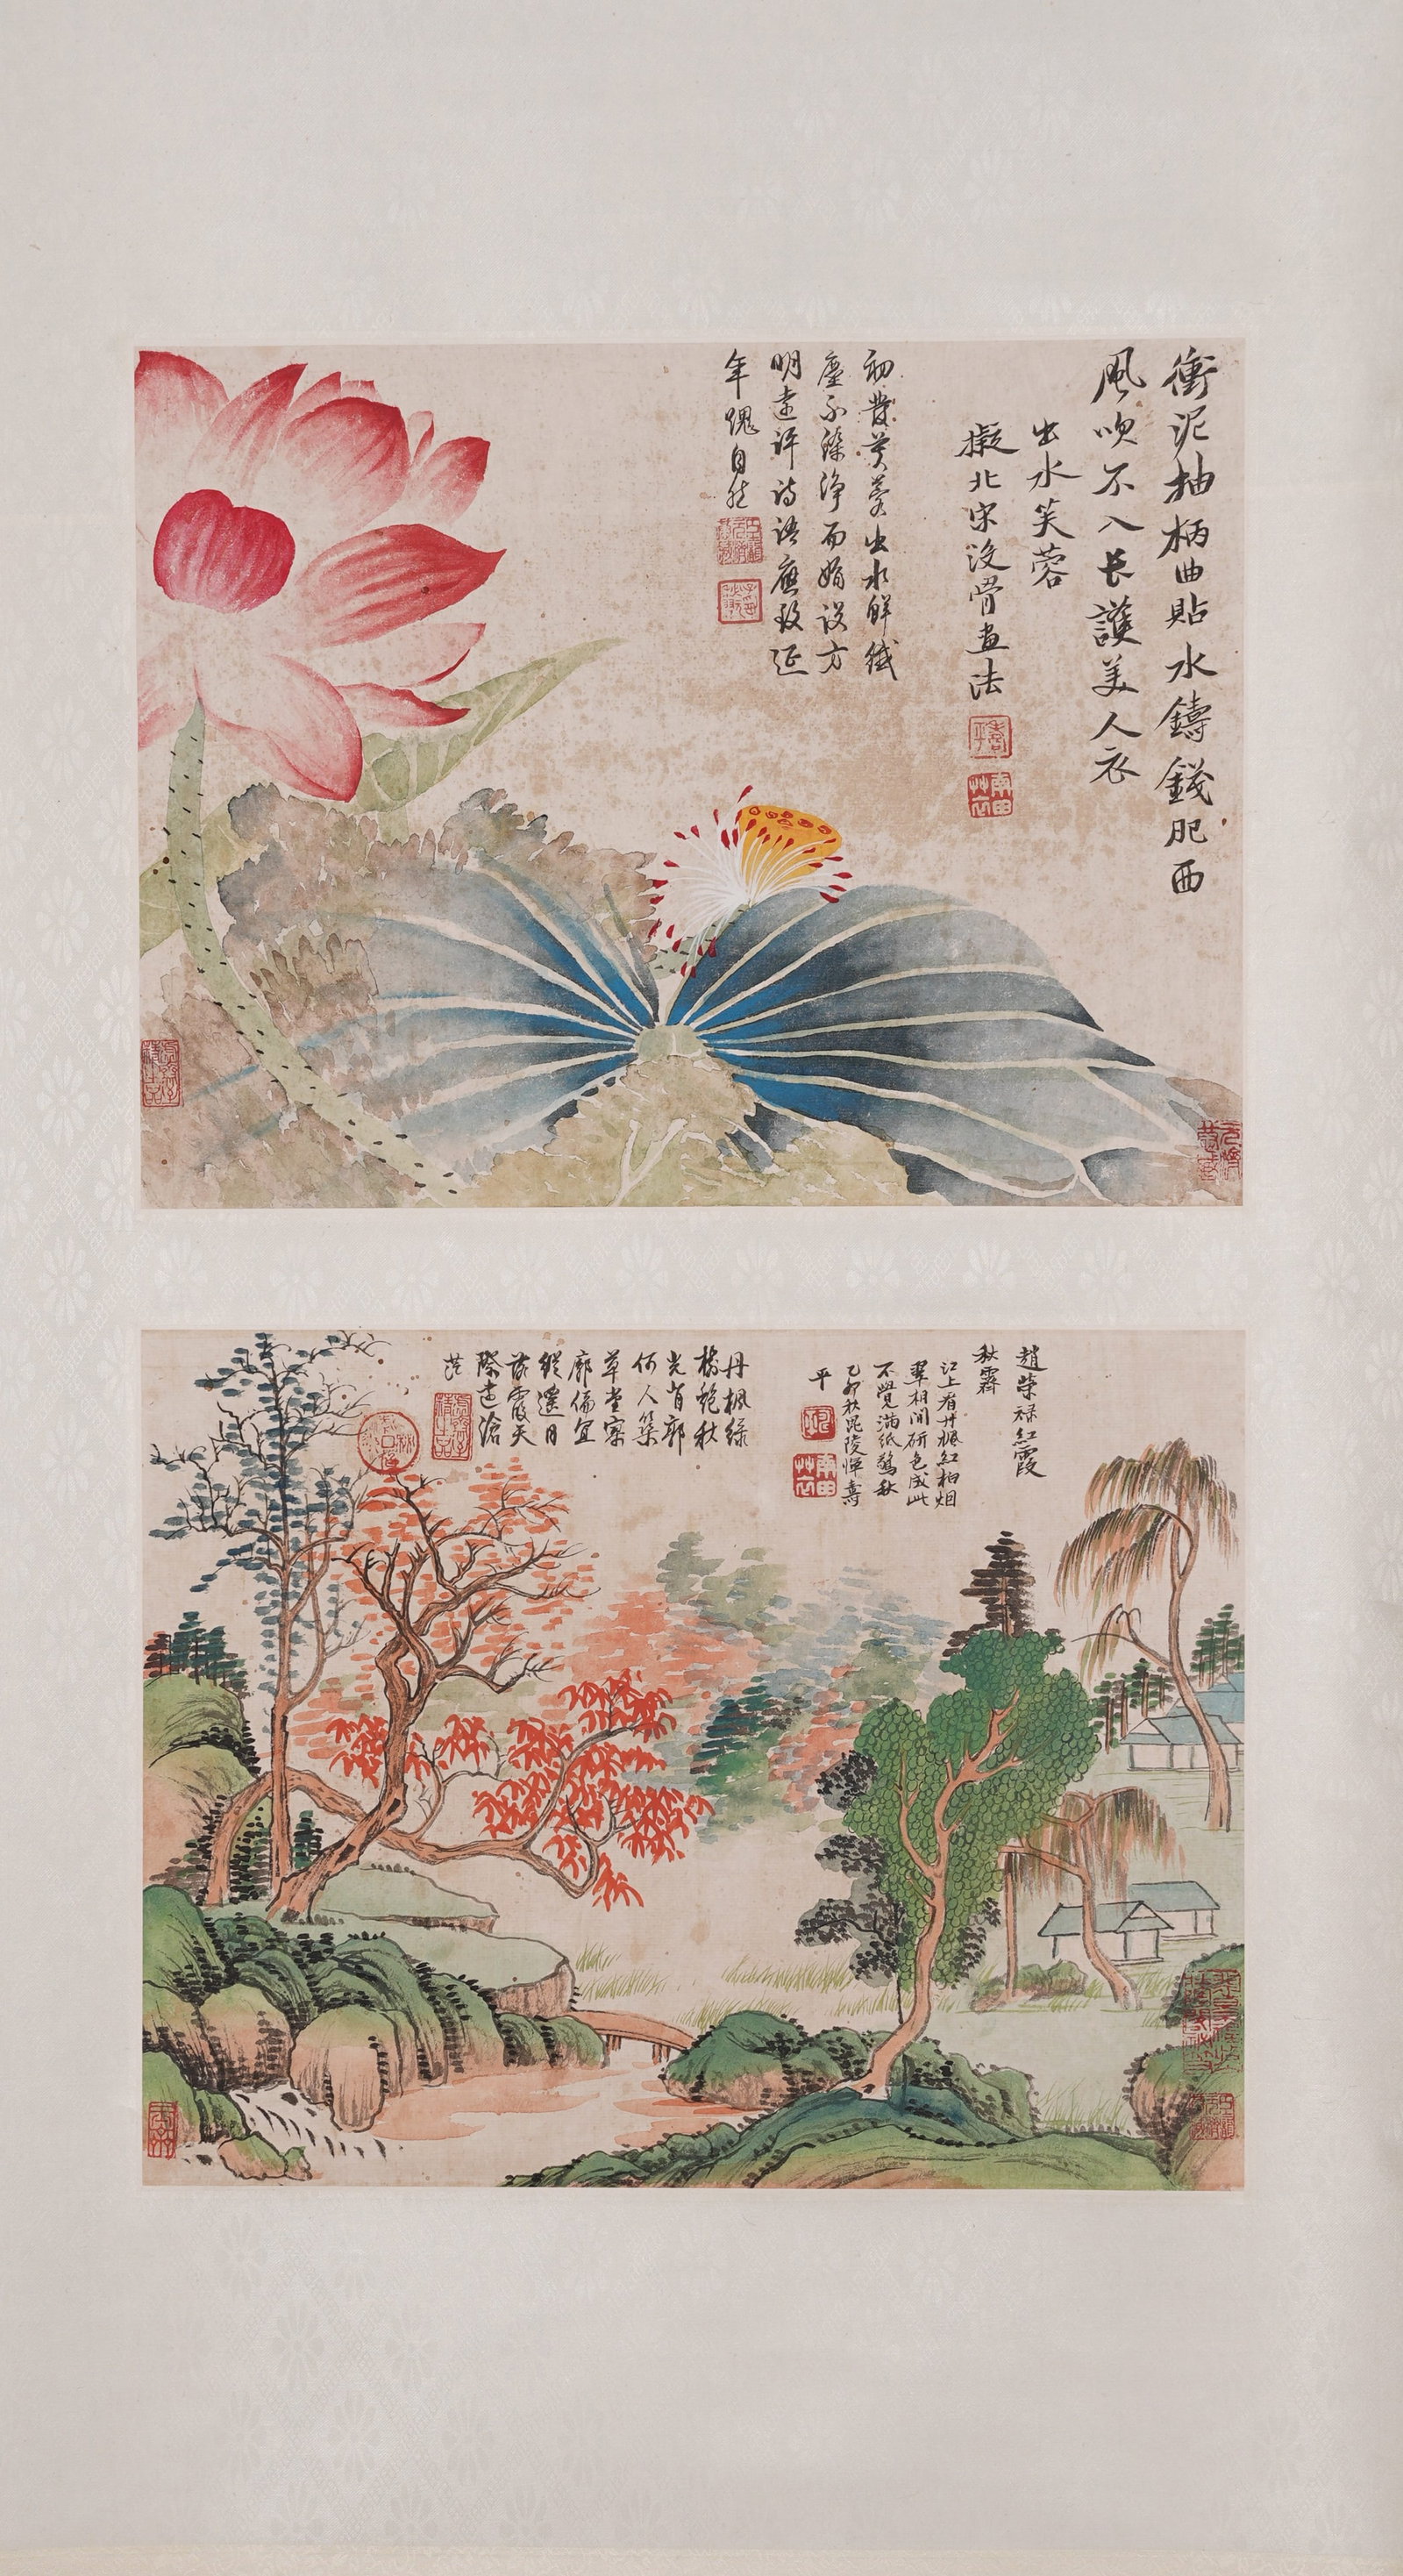 衝泥抽柄曲貼水鑄錢肥西
風吹不入長護美人衣
出水芙蓉
擬北宋沒骨畫法
壽平
南田草衣
初發芙蓉出水鮮纖
塵不染淨而娟設方
明遠評詩語應敎延
年愧自然
趙榮祿紅霞
秋霽
江上看丹楓紅柏烟
翠相間研色成此
不覺滿紙驚秋
乙卯秋毘陵惲壽
平
南田草衣
丹楓綠
樹絢秋
光肖郭
何人築
草堂寥
廓偏宜
縱遙目
落霞天
際遠滄
茫